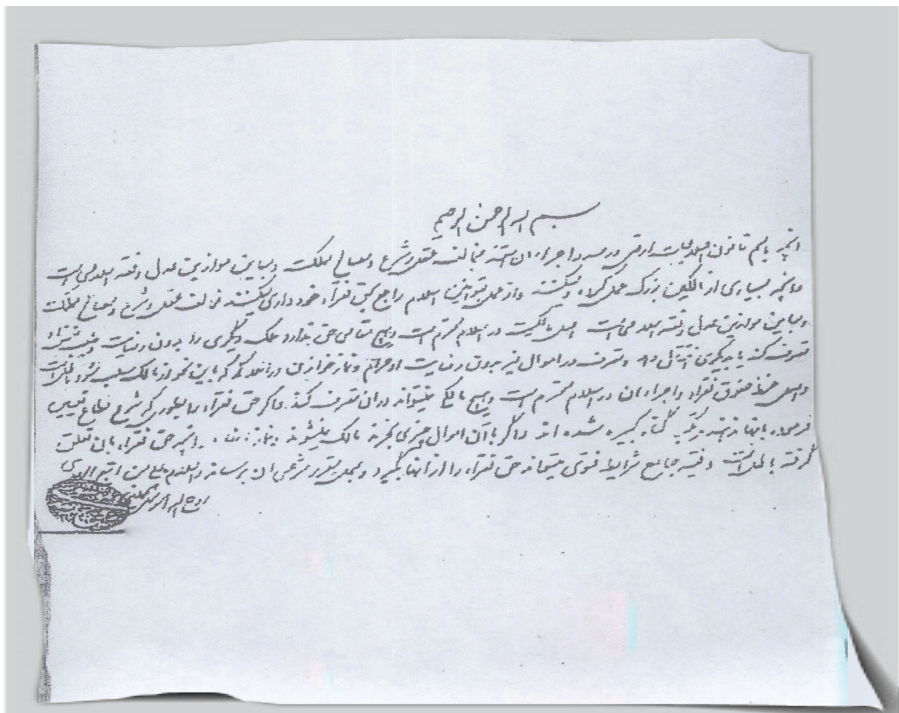 بسم الله الرحمن الرحیم
آنچه باسم قانون اصلاحات ارضی درصدد اجراء آن هستند مخالف عقل و شرع و مصالح مملکت و مباین موازین عدل و فقه اسلامی است
چنانچه بسیاری از مالکین بزرگ عمل کرده و میکنند و از عمل بقوانین اسلام راجع بحق فقراء خودداری میکنند مخالف عقل و شرع و مصالح مملکت
و مباین موازین عدل و فقه اسلامی است اصل مالکیت در اسلام محترم است و هیچ مقامی حق ندارد ملک دیگری را بدون رضایت
تصرف کند یا بدیگری و تصرف در اموال غیر بدون رضایت او حرام و نماز خواندن در
و اصل حفظ حقوق فقراء و اجراء آن در اسلام محترم است و هیچ مالکی نمیتواند در آن تصرف کند و اگر حق فقراء را بطوری که شرع مطاع تعیین
فرموده بآنها ندهند مرتکب گناه کبیره شده اند و اگر با آن اموال چیزی بخرند مالک نمیشوند و آنچه حق فقراء بآن تعلق
گرفته باطل است و فقیه جامع شرایط فتوی میتواند حق فقراء را از آنها بگیرد و بمصرف شرعی آن برساند والسلام علی من اتبع الهدی
روح الله